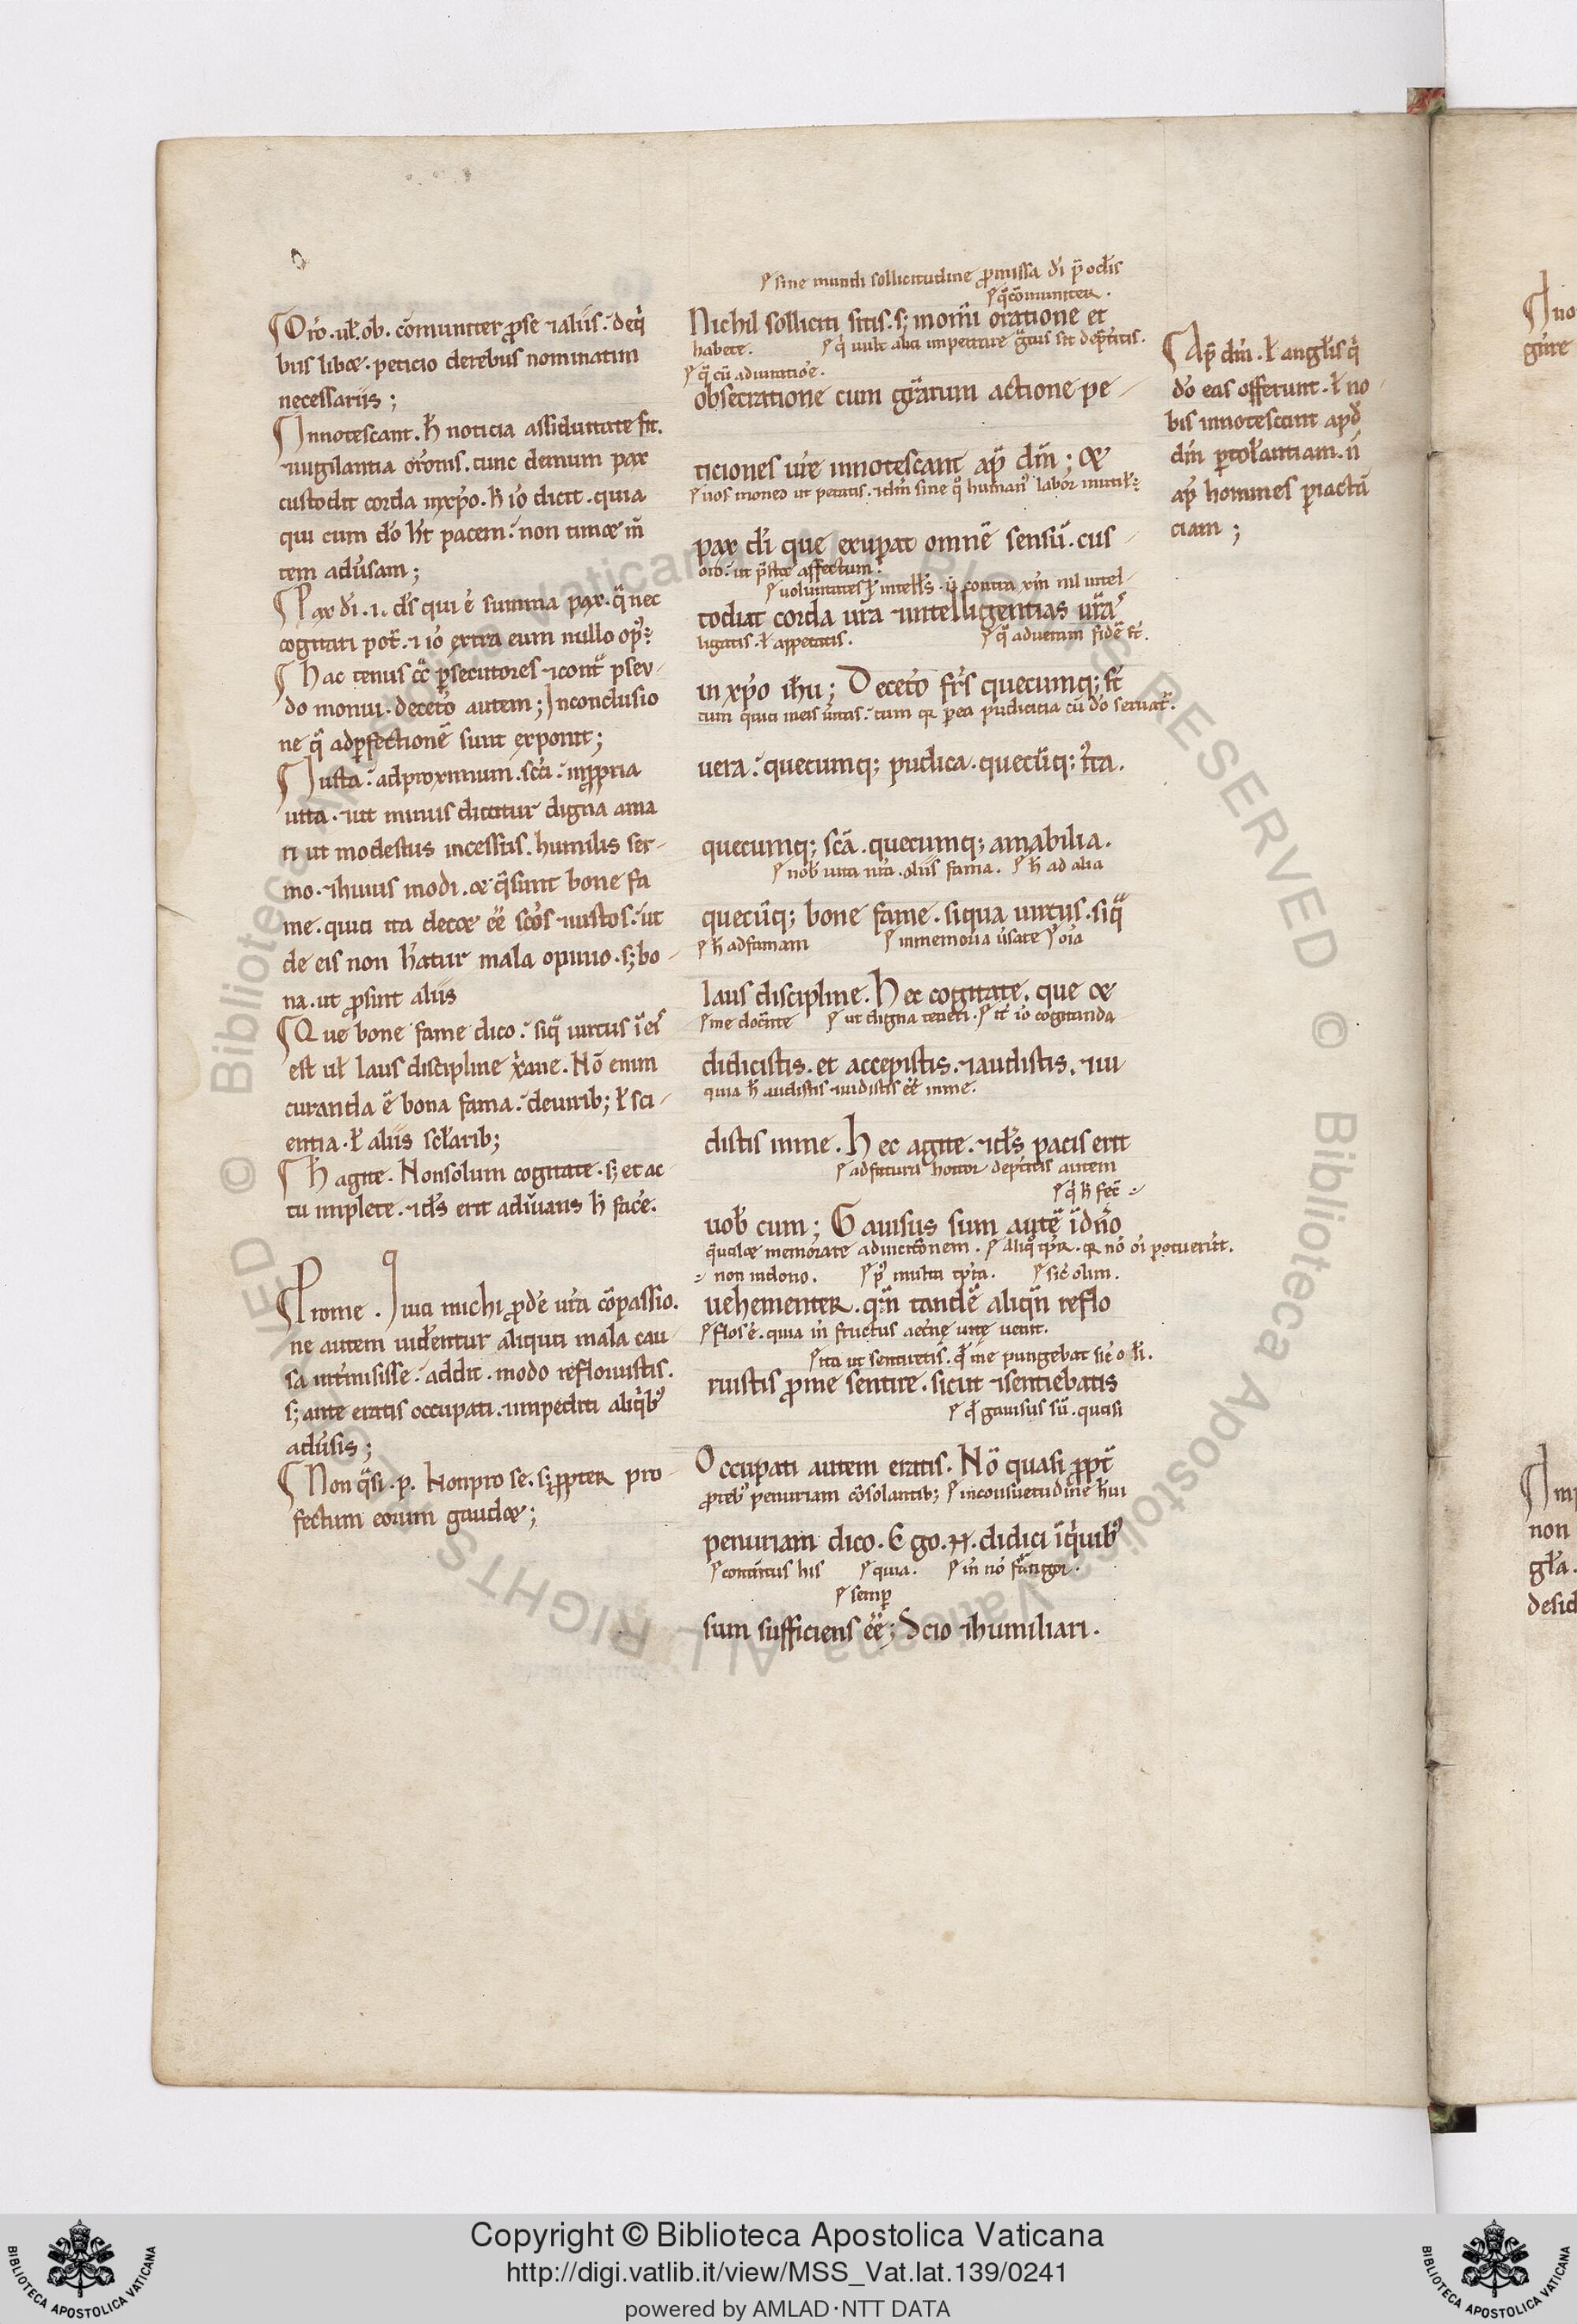 ¶ Or̄o. ul̄. ob. cōmuniter ꝓ se ⁊ aliis. de qͥ
bus libꝫ. peticio de rebus nominatim
necessariis ;
¶ Innotescant. h̄ noticia assiduitate fit.
⁊ uigilantia or̄onis. tunc demum pax
custodit corda in xp̄o. h̄ iō dicit. quia
qui cum dō h̄t pacem. non timꝫ m̄
tem aduersam ;
¶ Pax dī .i. d̄s qui ē summa pax. q̄ nec
cogitari pot̄. ⁊ iō extra eum nullo opꝰ.
¶ Hac tenus cͣ ꝑsecutores ⁊ contͣ pseu-
do monui. de cet̄o autem ; In conclusio
ne q̄ ad ꝑfectionē sunt exponit ;
¶ Iusta. ad proximum. sc̄a. in ꝓpria
uita. ⁊ ut minus dicitur digna ama
ri ut modestus incessus. humilis ser-
mo. ⁊ huius modi. ⁊ q̄ sunt bone fa
me. quia ita decꝫ eē sc̄os ⁊ iustos. ut
de eis non h̄atur mala opinio. sꝫ bo-
na. ut ꝓsint aliis
¶ Que bone fame dico. siqͣ uirtus ī eis
est ul̄ laus discipline x̄ane. Nō enim
curanda ē bona fama. de uirib; ł sci-
entia. ł aliis sc̄larib;
¶ H̄ agite. Non solum cogitate. sꝫ et ac
tu implete. ⁊ d̄s erit adiuuans h̄ facere.
¶ Prome. Iua michi ꝓdē ur̄a cōpassio.
ne autem uid̄entur aliqua mala cau-
sa int̄misisse. addit. modo refloruistis.
sꝫ ante eratis occupati. ⁊ impediti aliqͥbꝰ
aduersis ;
¶ Non qͣsi .p. Non pro se. sꝫ ꝓpter pro-
fectum eorum gaudꝫ ;
sine mundi sollicitudine ꝓmissa
q̄ cōmuniter.
Nichil solliciti sitis. sꝫ in om̄i oratione et
habete. qͥ uult alia impetrare gͣtus sit de p̄t̄itis.
q̄ cū adiuratiōe.
obsecratione cum gr̄arum actione pe-
ticiones ur̄e innotescant ap̄ dm̄ ; Et
uos moneo ut petatis. ⁊ dm̄ sine qͦ humanꝰ labor inutil̄.
pax dī que exuperat omnē sensū. cus-
uoluntates ⁊ intell̄s. ī contra xm̄ nil intel-
todiat corda ur̄a ⁊ intelligentias ur̄as
ligatis. ł appetatis. q̄ ad ueram fidē s̄t.
in xp̄o ihu ; De cet̄o fr̄s quecumq; st̄
uera. quecumq; pudica. quecūq; iusta.
quecumq; sc̄a. quecumq; amabilia.
nob̄ uita ur̄a. aliis fama. h̄ ad alia
quecūq; bone fame. siqua uirtus. siqͣ
h̄ ad famam in memoria uersate
laus discipline. Hec cogitate. que et
me docente ut digna teneri. ⁊ iō cogitanda
didicistis. et accepistis. ⁊ audistis. ⁊ ui
quia h̄ audistis ⁊ uidistis eē in me.
distis in me. Hec agite. ⁊ d̄s pacis erit
ad futura hortor de p̄t̄itis autem
qͥ h̄ fec̄
uob̄ cum ; Gauisus sum autē ī dn̄o
non in dono. pꝰ multa tp̄ra. sic̄ olim.
uehementer. qn̄ tandē aliqn̄ reflo
flos ē. quia in fructus aet̄ne uite uenit.
ita ut sentiretis. me pungebat
ruistis ꝓ me sentire. sicut ⁊ sentiebatis
gauisus sū. quasi
Occupati autem eratis. Nō quasi ꝓpt̄
ꝓ rebꝰ penuriam cōsolantib; in consuetudine
penuriam dico. Ego .n. didici ī qͥbꝰ
contentus his quia.
semꝑ
sum sufficiens eē ; Scio ⁊ humiliari.
¶ Ap̄ dm̄. ł angl̄is qͥ
dō eas offerunt. ł no-
bis innotescant apđ
dm̄ ꝑ tol̄antiam. n̄
ap̄ homines ꝑ iactā
ciam ;
Copyright © Biblioteca Apostolica Vaticana
http://digi.vatlib.it/view/MSS_Vat.lat.139/0241
powered by AMLAD·NTT DATA